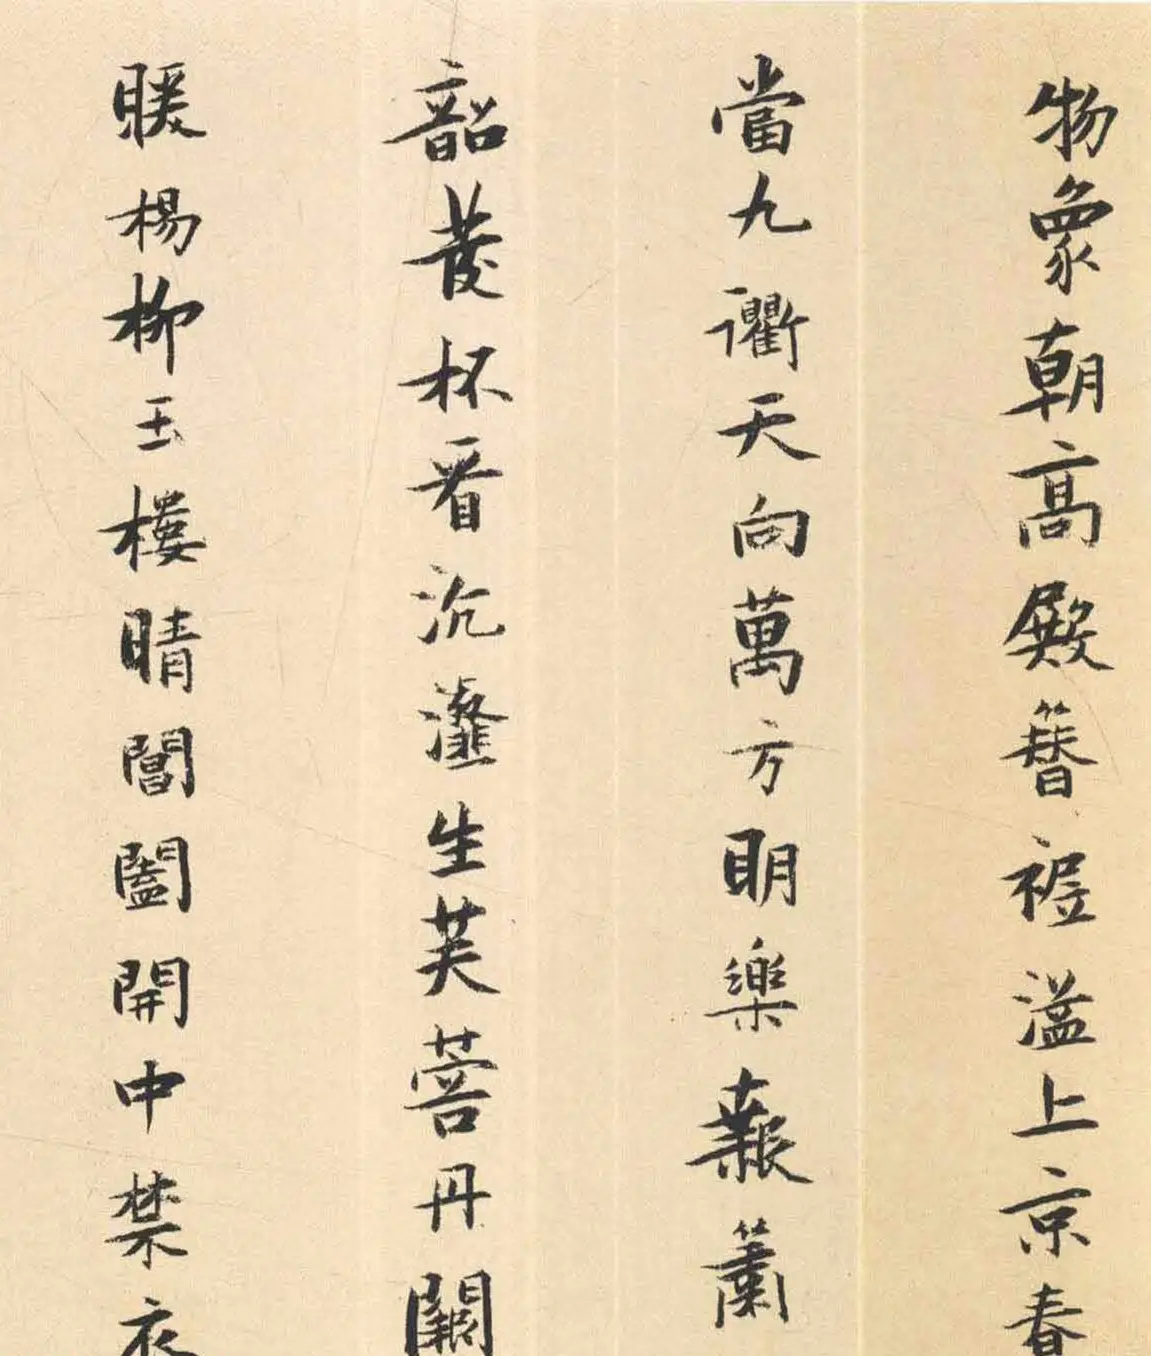 物象朝高殿簪裾溢上京春
當九衢天向萬方明樂報簫
韶發杯看沆瀣生芙蓉丹闕
暖楊柳玉樓晴閶闔開中禁衣